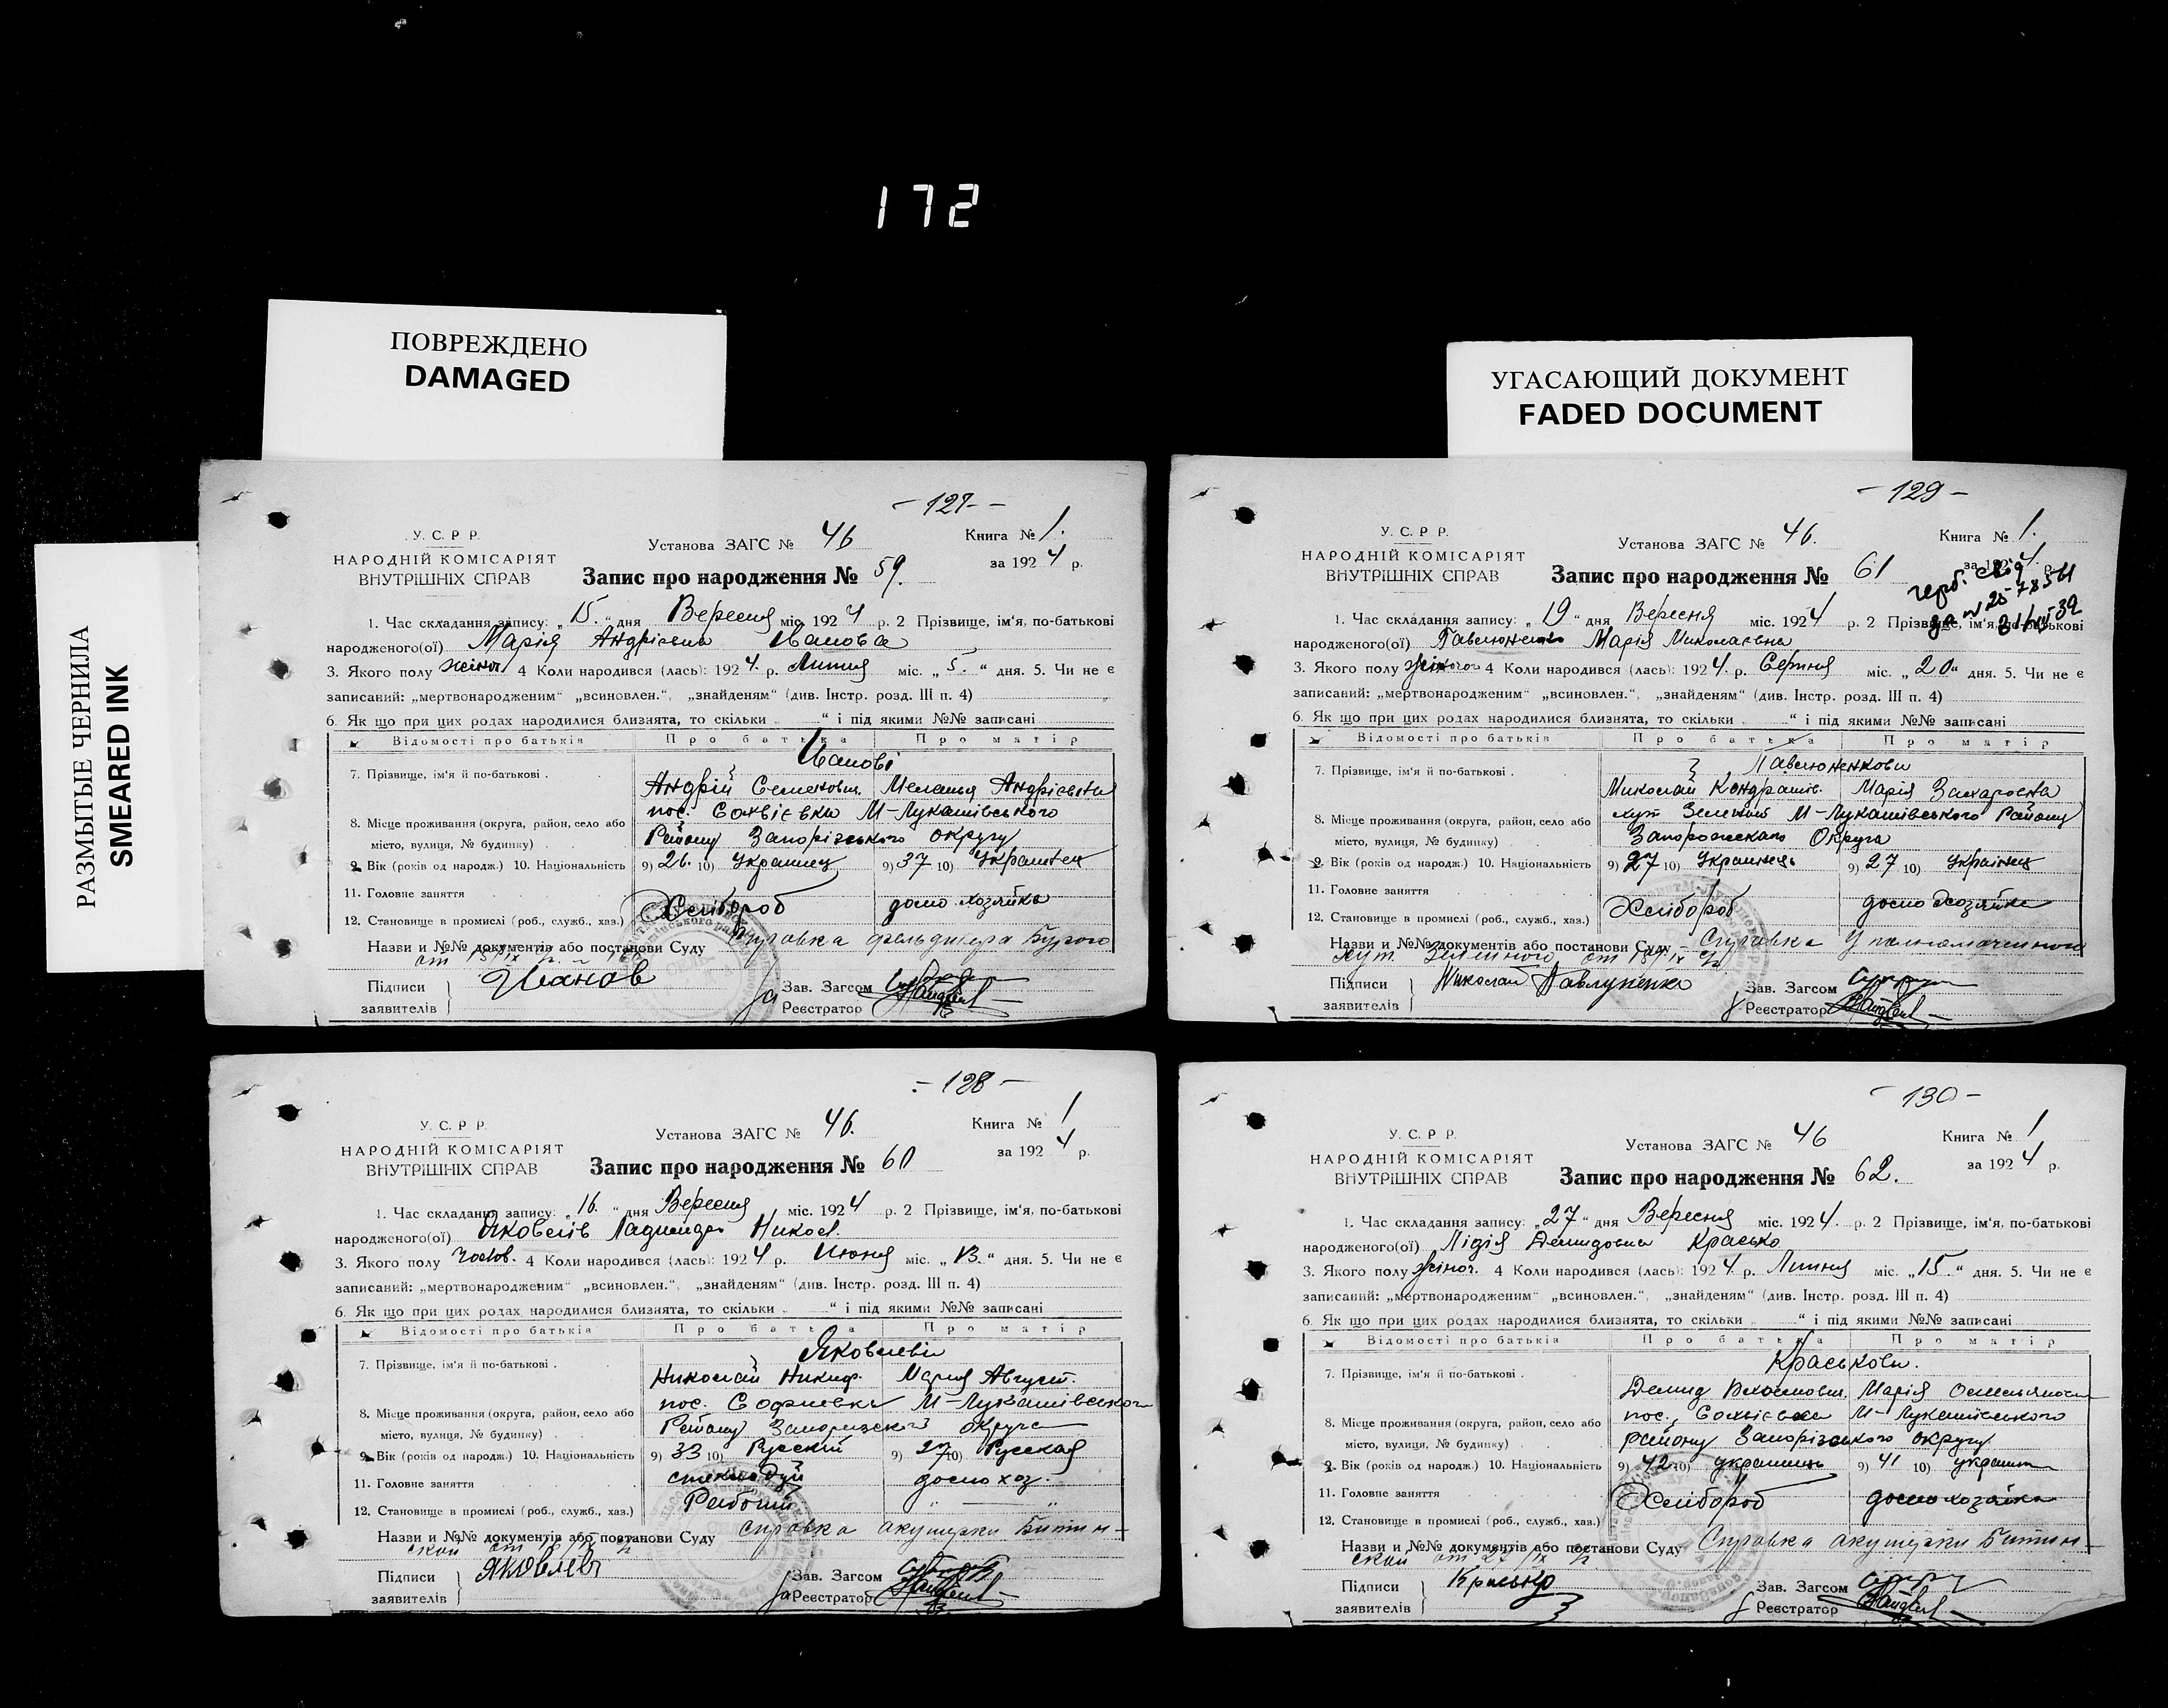 172
ПОВРЕЖДЕНО
DAMAGED
УГАСАЮЩИЙ ДОКУМЕНТ
FADED DOCUMENT
РАЗМЫТЫЕ ЧЕРНИЛА
SMEARED INK
- 127 -
У. С. Р Р.
НАРОДНІЙ КОМІСАРІЯТ
ВНУТРІШНІХ СПРАВ
Установа ЗАГС № 46
Книга № 1.
за 1924 р.
Запис про народження № 59.
1. Час складання запису: „15.“ дня Вересня міс. 1924 р. 2 Прізвище, ім'я, по-батькові
народженого(ої) Марія Андрієвна Иванова
3. Якого полу жіноч 4 Коли народився (лась): 1924. р. Липня міс. „5.“ дня. 5. Чи не є
записаний: „мертвонародженим“ „всиновлен.“, „знайденям“ (див. Інстр. розд. III п. 4)
6. Як що при цих родах народилися близнята, то скільки „ “ і під якими №№ записані
Відомості про батьків Про батька Про матір
Иванові
7. Прізвище, ім'я й по-батькові . Андрій Семенович. Меланья Андрієвна
пос. Софвієвка М-Лукашівського
8. Місце проживання (округа, район, село або
місто, вулиця, № будинку) . Району Запорізського округу
9. Вік (років од народж.) 10. Національність 9) 26. 10) Украинец 9) 37 10) Украинец
11. Головне заняття Хлібороб домохозяйка
12. Становище в промислі (роб., служб., хаз.)
Назви и №№ документів або постанови Суду Справка фельдшера Бурого
от 15/IX
Підписи
заявителів
Иванов
Зав. Загсом
Реєстратор
- 129 -
У. С. Р Р.
НАРОДНІЙ КОМІСАРІЯТ
ВНУТРІШНІХ СПРАВ
Установа ЗАГС № 46.
Книга № 1.
за 1924. р.
Запис про народження № 61
1. Час складання запису: „19“ дня Вересня міс. 1924 р. 2 Прізвище, ім'я, по-батькові
народженого(ої) Павлюненко Марія Миколаєвна
3. Якого полу жіночог 4 Коли народився (лась): 1924. р. Серпня міс. „20“ дня. 5. Чи не є
записаний: „мертвонародженим“ „всиновлен.“, „знайденям“ (див. Інстр. розд. III п. 4)
6. Як що при цих родах народилися близнята, то скільки „ “ і під якими №№ записані
Відомості про батьків Про батька Про матір
Павлюненкови
7. Прізвище, ім'я й по-батькові . Миколай Кондратів. Марія Захаровна
хут Зелений М-Лукашівського Району
8. Місце проживання (округа, район, село або
місто, вулиця, № будинку) . Запорожского Округа
9. Вік (років од народж.) 10. Національність 9) 27 10) Украинець 9) 27 10) Украінец
11. Головне заняття Хлібороб домохозяйка
12. Становище в промислі (роб., служб., хаз.)
Назви и №№ документів або постанови Суду Справка Уполномоченного
хут. Зеленого от 19/IX
Підписи
заявителів
Николай Павлуненко
Зав. Загсом
Реєстратор
- 128 -
У. С. Р Р.
НАРОДНІЙ КОМІСАРІЯТ
ВНУТРІШНІХ СПРАВ
Установа ЗАГС № 46.
Книга № 1
за 1924 р.
Запис про народження № 60
1. Час складання запису: „16.“ дня Вересня міс. 1924 р. 2 Прізвище, ім'я, по-батькові
народженого(ої) Яковлів Никол.
3. Якого полу чолов. 4 Коли народився (лась): 1924 р. Июня міс. „13.“ дня. 5. Чи не є
записаний: „мертвонародженим“ „всиновлен.“, „знайденям“ (див. Інстр. розд. III п. 4)
6. Як що при цих родах народилися близнята, то скільки „ “ і під якими №№ записані
Відомості про батьків Про батька Про матір
Яковлеви
7. Прізвище, ім'я й по-батькові . Николай Никиф. Мария Август.
пос. Софиевка М-Лукашівського
8. Місце проживання (округа, район, село або
місто, вулиця, № будинку) . Району округа
9. Вік (років од народж.) 10. Національність 9) 33 10) Русский 9) 27 10) Русская
11. Головне заняття домохоз.
12. Становище в промислі (роб., служб., хаз.) Рабочий „ — “
Назви и №№ документів або постанови Суду Справка акушерки Битин-
ской от
Підписи
заявителів
Яковлев
Зав. Загсом
Реєстратор
- 130 -
У. С. Р Р.
НАРОДНІЙ КОМІСАРІЯТ
ВНУТРІШНІХ СПРАВ
Установа ЗАГС № 46
Книга № 1
за 1924 р.
Запис про народження № 62.
1. Час складання запису: „27“ дня Вересня міс. 1924. р. 2 Прізвище, ім'я, по-батькові
народженого(ої) Лідія Демидовна Красько
3. Якого полу жіноч. 4 Коли народився (лась): 1924 р. Липня міс. „15.“ дня. 5. Чи не є
записаний: „мертвонародженим“ „всиновлен.“, „знайденям“ (див. Інстр. розд. III п. 4)
6. Як що при цих родах народилися близнята, то скільки „ “ і під якими №№ записані
Відомості про батьків Про батька Про матір
Краськови.
7. Прізвище, ім'я й по-батькові . Демид Марія
пос. Софвієвка М-Лукашівського
8. Місце проживання (округа, район, село або
місто, вулиця, № будинку) . району Запорізького округу
9. Вік (років од народж.) 10. Національність 9) 42 10) украинць 9) 41 10)
11. Головне заняття Хлібороб домохозяйка
12. Становище в промислі (роб., служб., хаз.)
Назви и №№ документів або постанови Суду Справка акушерки Битин-
ской от 27/IX
Підписи
заявителів
Красько
Зав. Загсом
Реєстратор